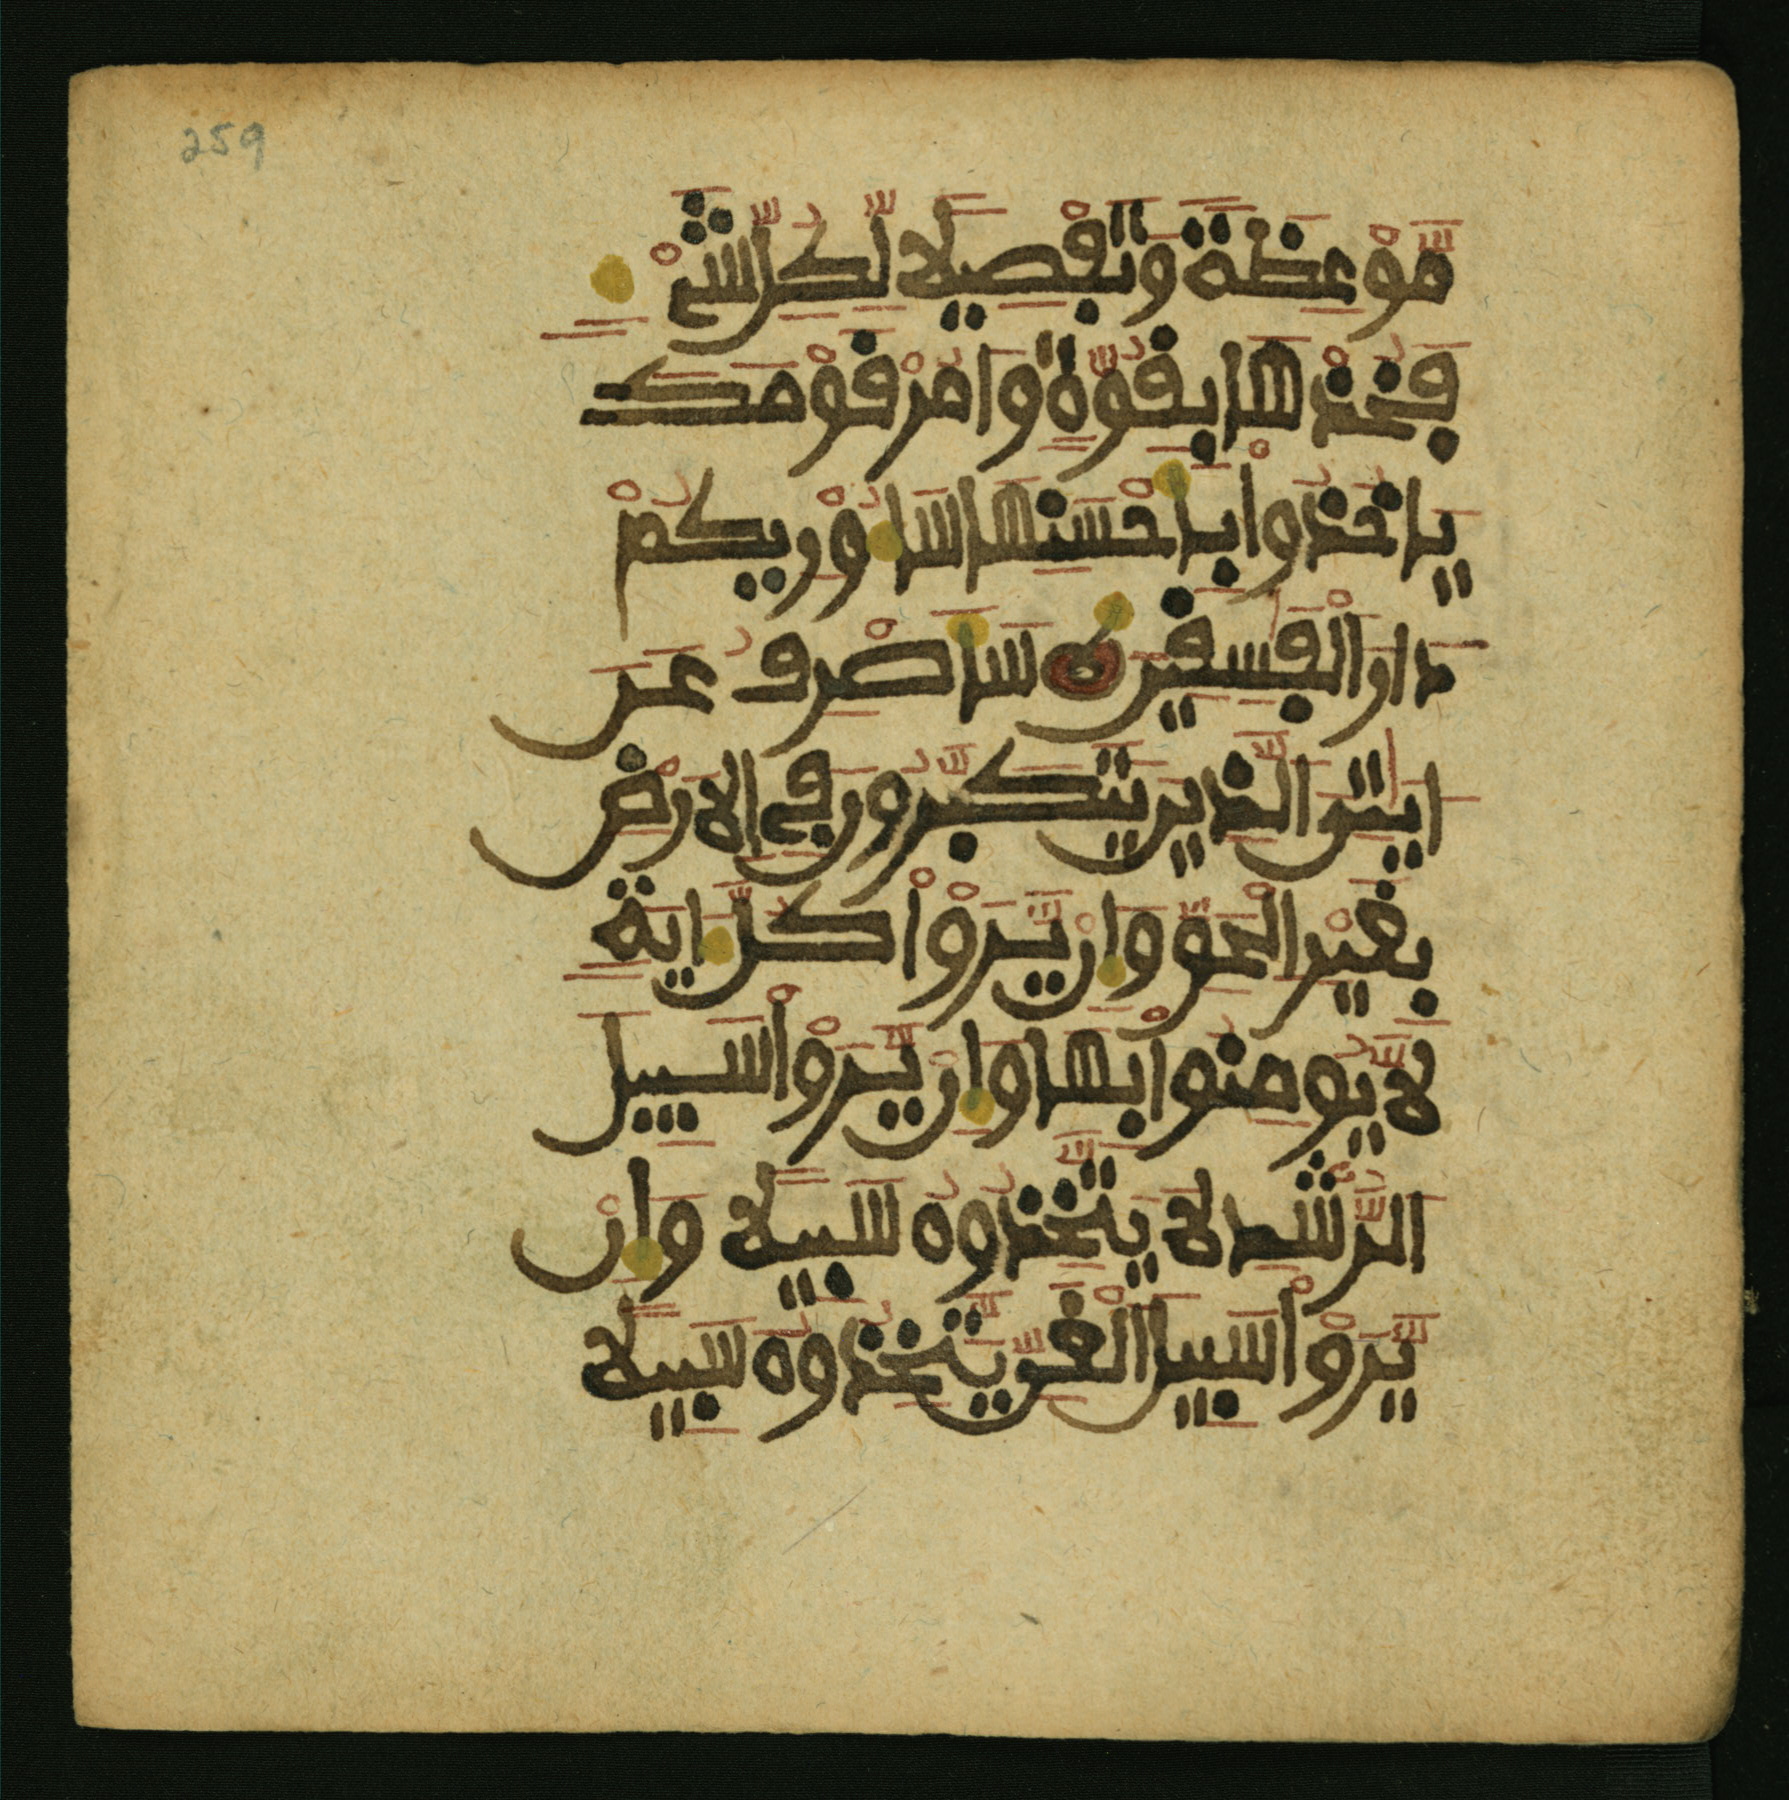 259
مَّوْعِظَةً وَتَفْصِيلًا لِّكُلِّ شَيْءٍ
فَخُذْهَا بِقُوَّةٍ وَامُرْ قَوْمَكَ
يَاخُذُواْ بِأَحْسَنِهَا سَأُوْرِيكُمْ
دَارَ الْفَٰسِقِينَ سَأَصْرِفُ عَنَ
ايَٰتِيَ الَّذِينَ يَتَكَبَّرُونَ فِي الَارْضِ
بِغَيْرِ الْحَقِّ وَإِنْ يَّرَوْاْ كُلَّ ءَايَةٍ
لَّا يُومِنُواْ بِهَا وَإِنْ يَّرَوْاْ سَبِيلَ
الرُّشْدِ لَا يَتَّخِذُوهُ سَبِيلًا وَإِنْ
يَّرَوْاْ سَبِيلَ الْغَيِّ يَتَّخِذُوهُ سَبِيلًا